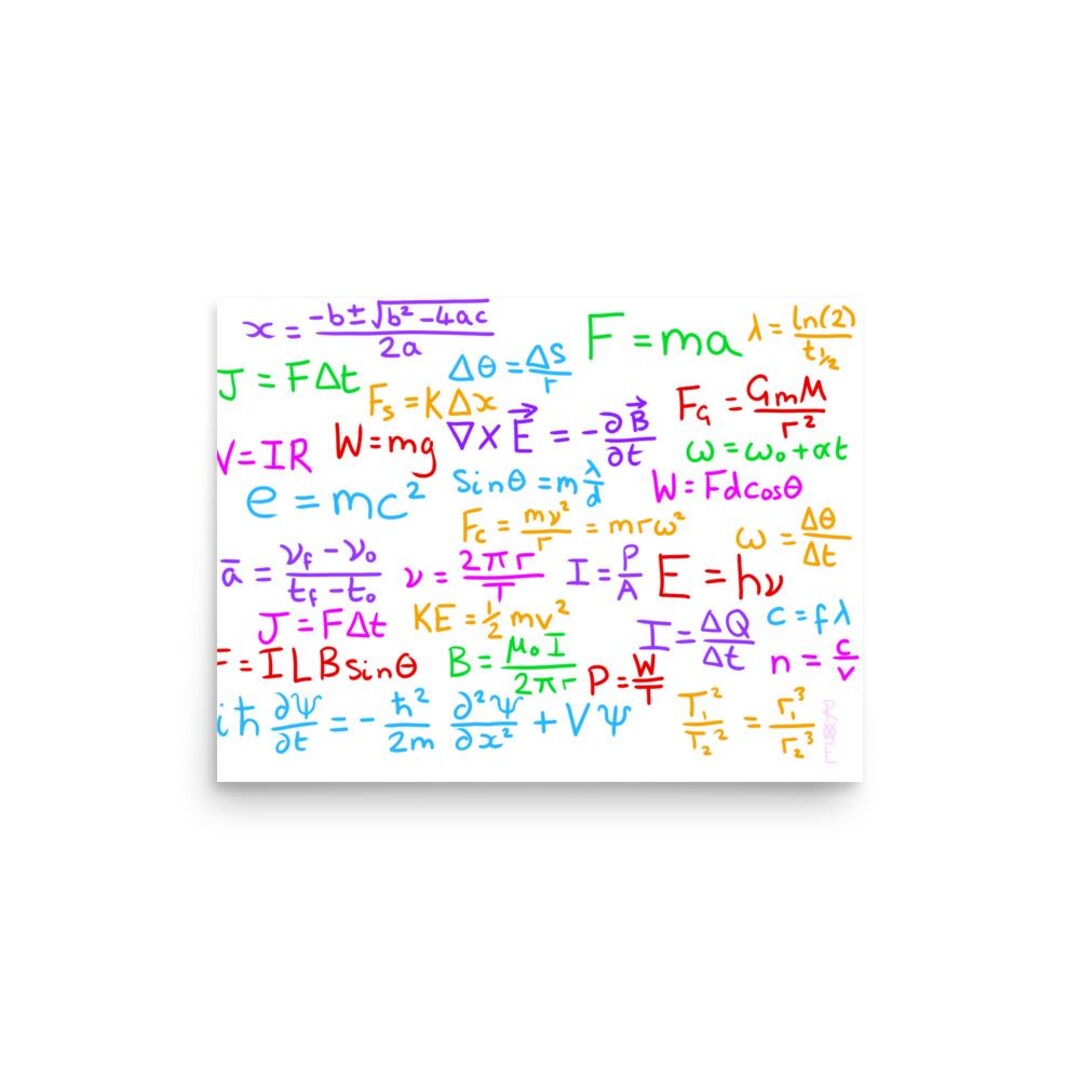 x = -b±√b²-4ac / 2a
F = ma
λ = ln(2) / t½
J = FΔt
Δθ = ΔS / r
Fs = KΔx
FG = GmM / r²
V = IR
W = mg
∇ × E⃗ = -∂B⃗ / ∂t
ω = ω₀ + αt
e = mc²
Sinθ = m λ/d
W = Fdcosθ
Fc = mv² / r = mrω²
ω = Δθ / Δt
ā = vf - v₀ / tf - t₀
v = 2πr / T
I = P / A
E = hν
J = FΔt
KE = ½ mv²
I = ΔQ / Δt
c = fλ
F = ILBsinθ
B = μ₀I / 2πr
P = W / T
n = c / v
iħ ∂Ψ/∂t = - ħ²/2m ∂²Ψ/∂x² + VΨ
T₁² / T₂² = r₁³ / r₂³